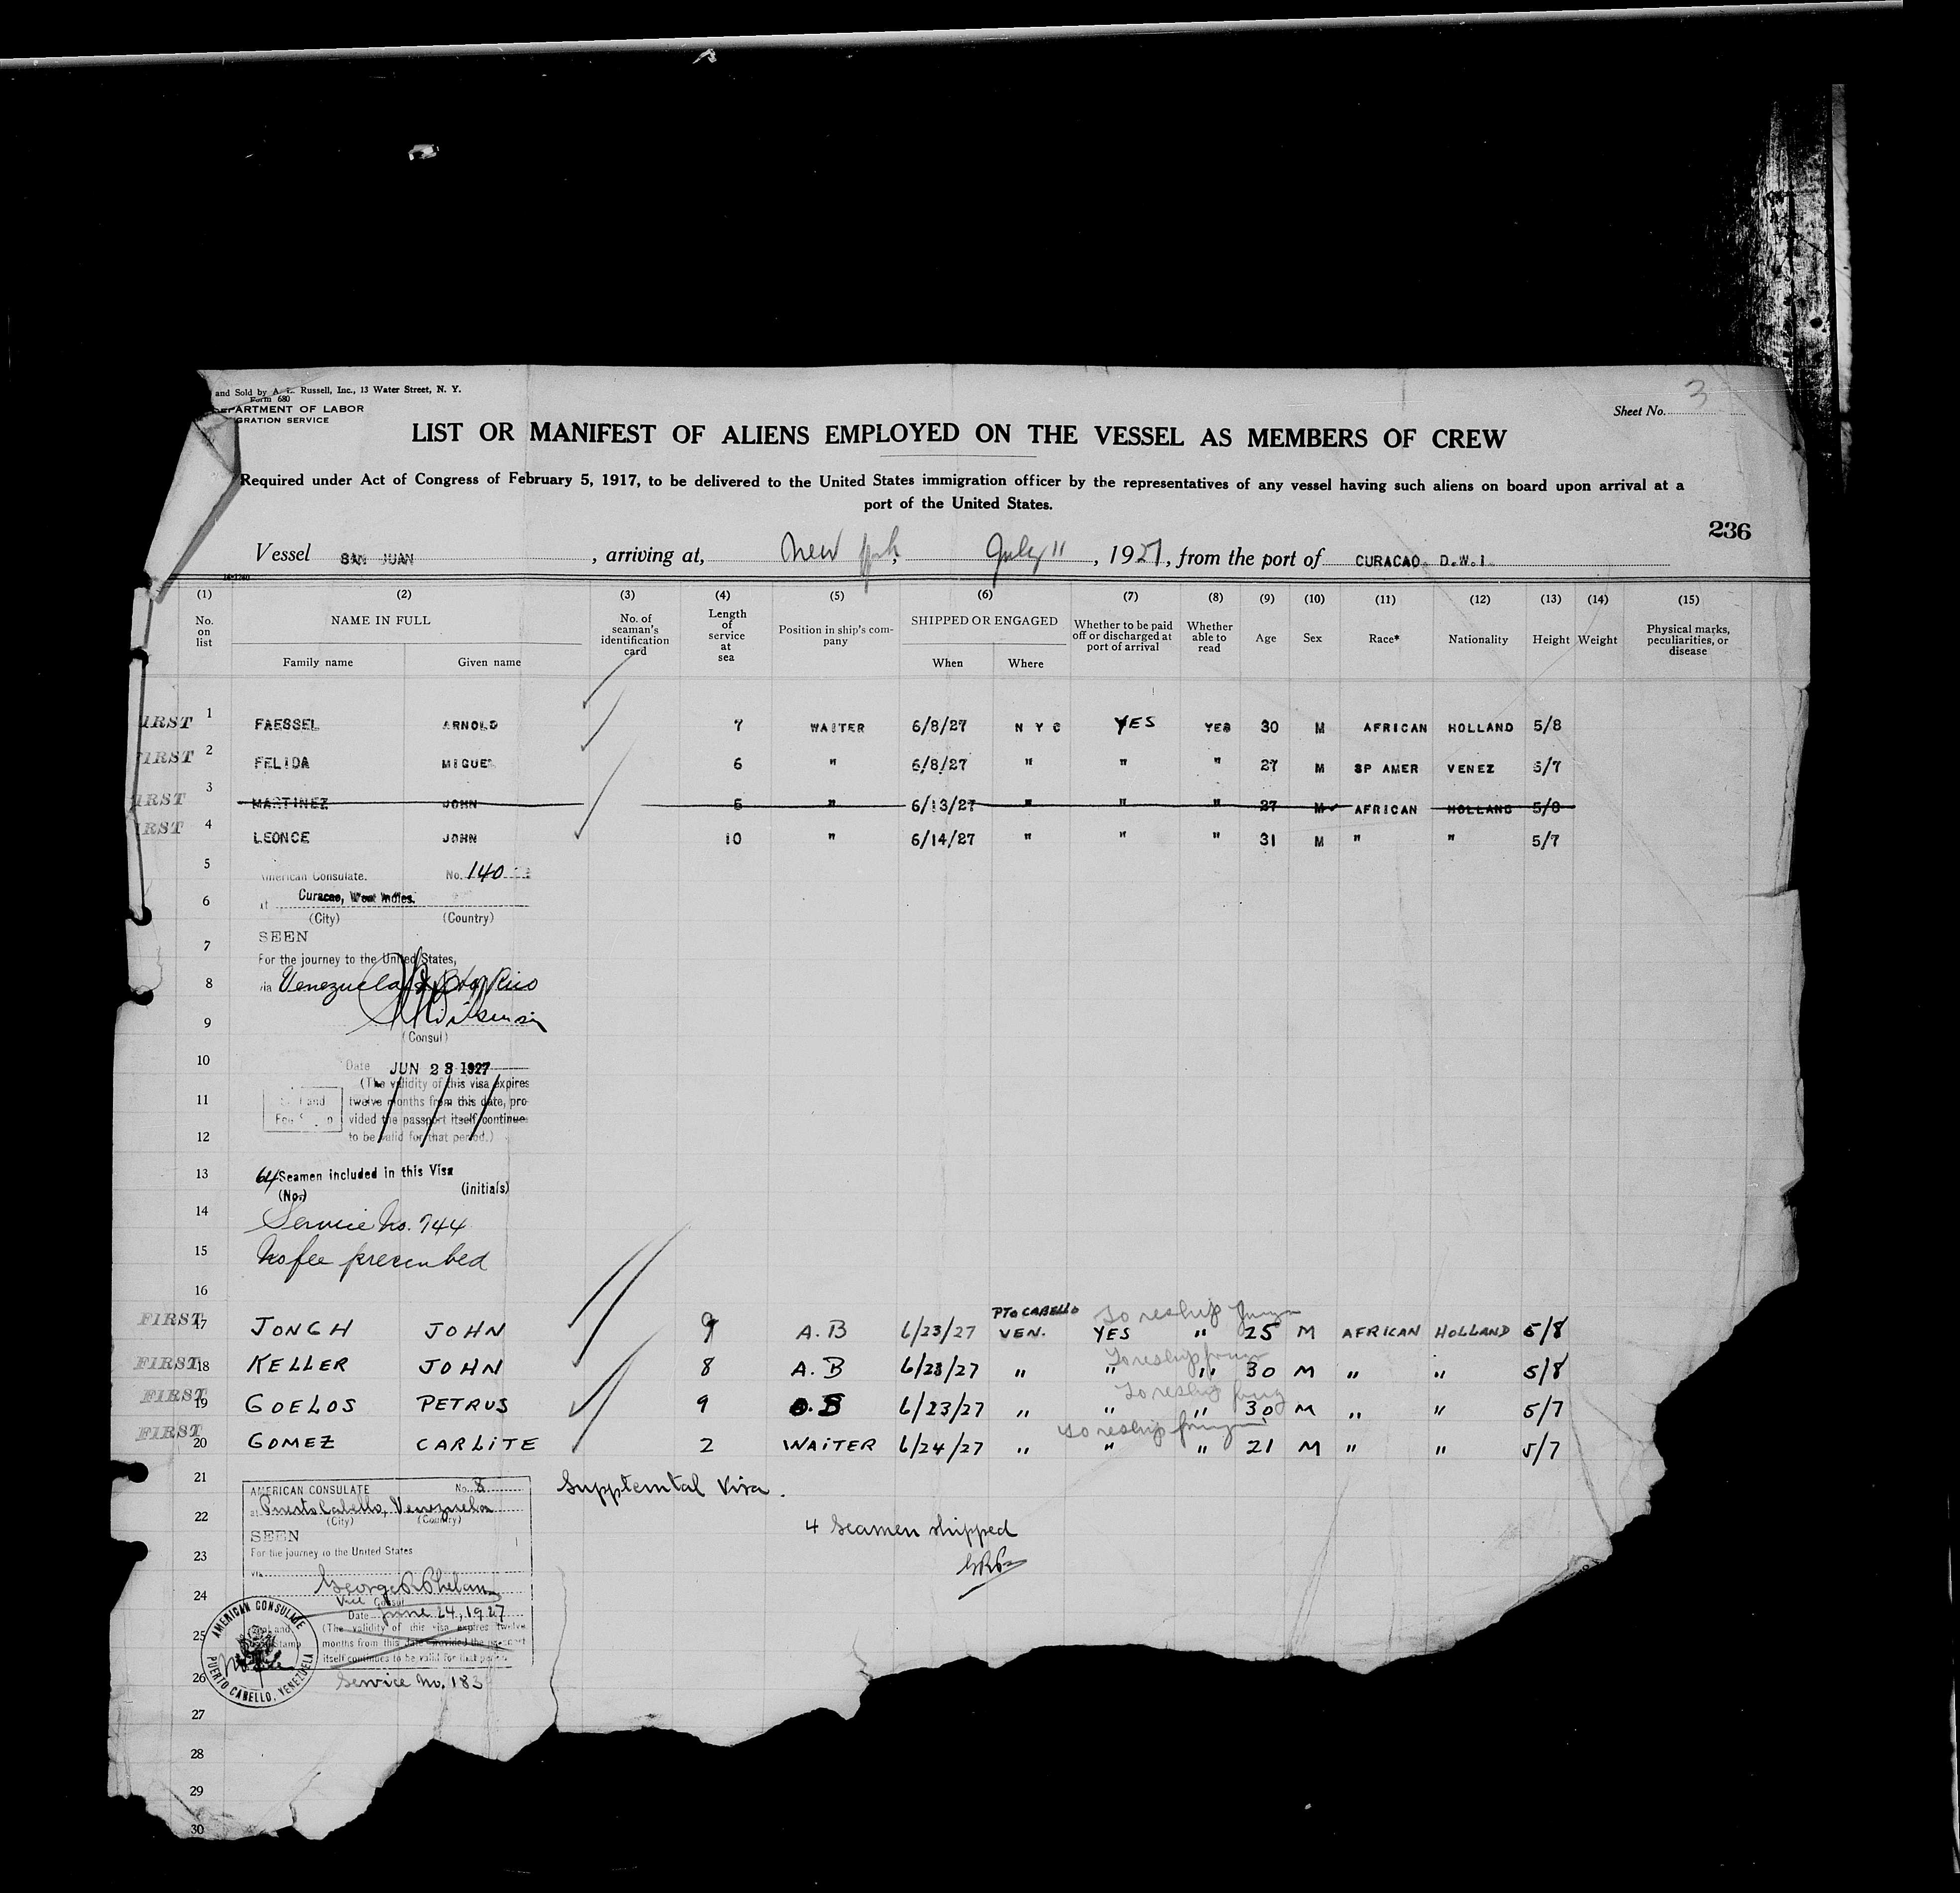 and Sold by A. L. Russell, Inc., 13 Water Street, N. Y.
Form 680
DEPARTMENT OF LABOR
GRATION SERVICE
Sheet No. 3
LIST OR MANIFEST OF ALIENS EMPLOYED ON THE VESSEL AS MEMBERS OF CREW
Required under Act of Congress of February 5, 1917, to be delivered to the United States immigration officer by the representatives of any vessel having such aliens on board upon arrival at a
port of the United States.
236
Vessel SAN JUAN, arriving at, New York, July 11, 1927, from the port of CURACAO. D.W.I.
(1) (2) (3) (4) (5) (6) (7) (8) (9) (10) (11) (12) (13) (14) (15)
No. on list NAME IN FULL Family name Given name No. of seaman's identification card Length of service at sea Position in ship's company SHIPPED OR ENGAGED When Where Whether to be paid off or discharged at port of arrival Whether able to read Age Sex Race* Nationality Height Weight Physical marks, peculiarities, or disease
IRST 1 FAESSEL ARNOLD 7 WAITER 6/8/27 N Y C YES YES 30 M AFRICAN HOLLAND 5/8
FIRST 2 FELIDA MIGUEL 6 " 6/8/27 " " " 27 M SP AMER VENEZ 5/7
IRST 3 MARTINEZ JOHN 5 " 6/13/27 " " " 27 M AFRICAN HOLLAND 5/8
IRST 4 LEONCE JOHN 10 " 6/14/27 " " " 31 M " " 5/7
5 American Consulate. No. 140
6 at Curacao, West Indies.
(City) (Country)
SEEN
7
For the journey to the United States,
8 via Venezuela & Porto Rico
9
(Consul)
10 Date JUN 23 1927
(The validity of this visa expires
11 twelve months from this date, pro-
vided the passport itself continues
12 to be valid for that period.)
13 64 Seamen included in this Visa
(No.) (initials)
14 Service No. 744
15 No fee prescribed
16
FIRST 17 JONGH JOHN 9 A.B 6/23/27 PTO CABELLO VEN. YES To reship " 25 M AFRICAN HOLLAND 5/8
FIRST 18 KELLER JOHN 8 A.B 6/23/27 " " To reship " 30 M " " 5/8
FIRST 19 GOELOS PETRUS 9 O.S 6/23/27 " " To reship " 30 M " " 5/7
FIRST 20 GOMEZ CARLITE 2 WAITER 6/24/27 " " To reship " 21 M " " 5/7
21 AMERICAN CONSULATE No. 8 Supplemtal Visa.
at Puerto Cabello, Venezuela
22 (City) (Country) 4 Seamen shipped
SEEN
23 For the journey to the United States GRP
via
24 George R Phelan
Vice Consul
Date June 24, 1927
25 (The validity of this visa expires twelve
months from this date provided the passport
itself continues to be valid for that period
AMERICAN CONSULATE
PUERTO CABELLO, VENEZUELA
26 Service No. 183
27
28
29
30